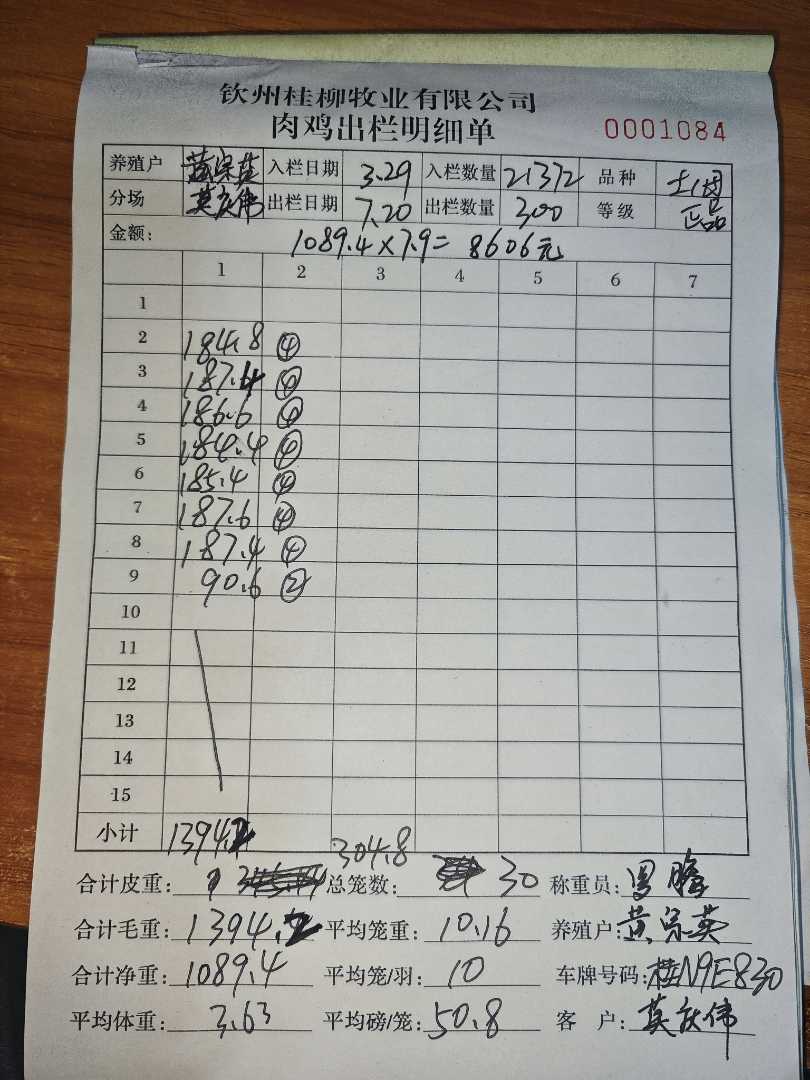 钦州桂柳牧业有限公司
肉鸡出栏明细单 0001084
养殖户 黄宗英 入栏日期 3.29 入栏数量 21372 品种 土2因
分场 莫庆伟 出栏日期 7.20 出栏数量 300 等级 正品
金额: 1089.4×7.9= 8606元
1 2 3 4 5 6 7
1
2 184.8 ④
3 187.4 ④
4 186.6 ④
5 184.4 ④
6 185.4 ④
7 187.6 ④
8 187.4 ④
9 90.6 ②
10
11
12
13
14
15
小计 1394.2
304.8
合计皮重: 总笼数: 30 称重员:
合计毛重: 1394.2 平均笼重: 10.16 养殖户: 黄宗英
合计净重: 1089.4 平均笼/羽: 10 车牌号码: 桂N9E830
平均体重: 3.63 平均磅/笼: 50.8 客 户: 莫庆伟